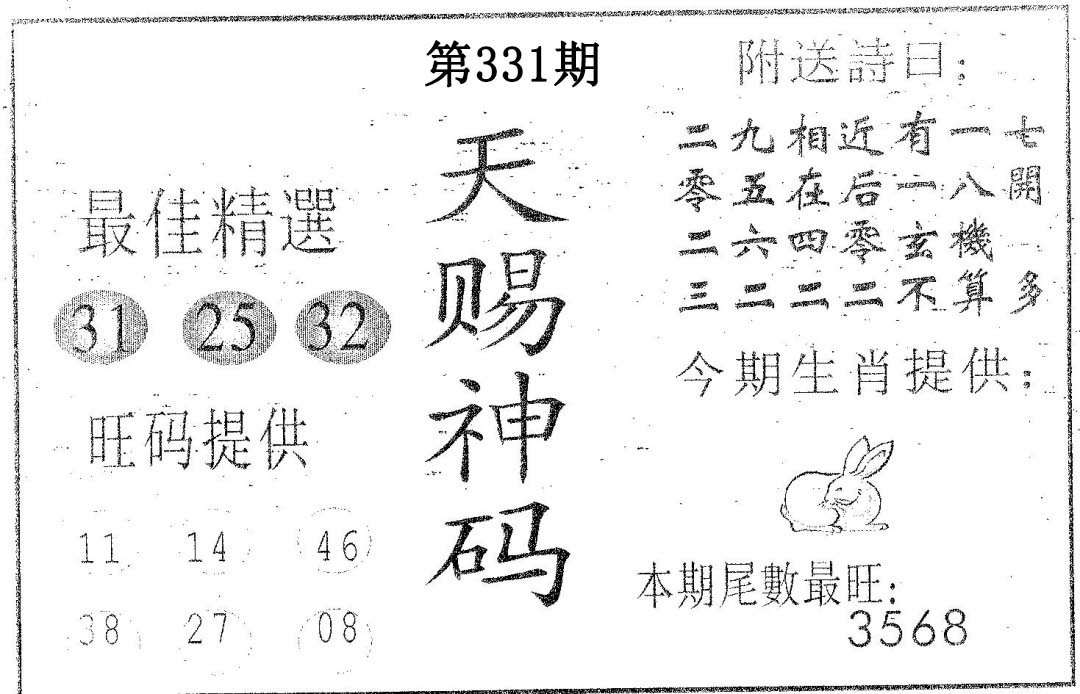 第331期
最佳精選
31 25 32
旺码提供
11 14 46
38 27 08
天赐神码
附送詩曰：
二九相近有一七
零五在后一八開
二六四零玄機
三二二二不算多
今期生肖提供：
本期尾數最旺：
3568